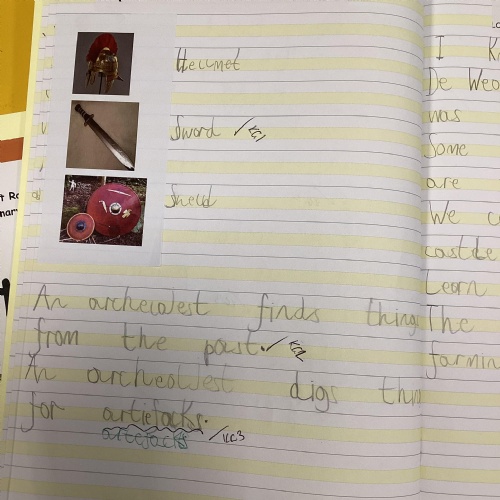 Helumet
Sword ✓ KC1
Sheld
An archewlest finds things
from the past. ✓ KC2
An archeowlest digs thr
for artiefacks.
artefacts / KC3
I K
De Weo
was
Some
are
We c
castle
Learn
The
farmin